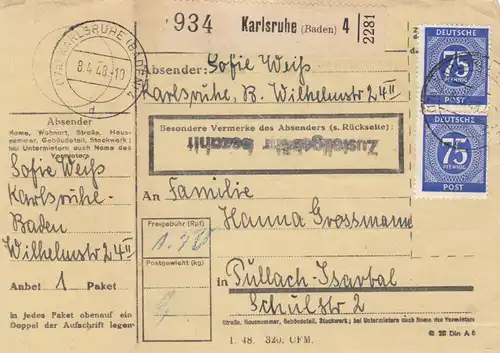 934 Karlsruhe (Baden) 4 2281
DEUTSCHE
75
POST
DEUTSCHE
75
POST
(17a) KARLSRUHE (BADEN) 4
8.4.48.-10
d
Absender: Sofie Weiß
Karlsruhe, B. Wilhelmstr 24 II
Besondere Vermerke des Absenders (s. Rückseite):
Zustellgebühr bezahlt
Absender
Name, Wohnort, Straße, Haus-
nummer, Gebäudeteil, Stockwerk;
bei Untermietern auch Name des
Vermieters
Sofie Weiß
Karlsruhe-
Baden
Wilhelmstr 24 II
Anbei 1 Paket
in jedes Paket obenauf ein
Doppel der Aufschrift legen
An Familie
Hanna Grossmann
Freigebühr (Rpf)
Postgewicht (kg)
in Pullach-Isartal
Schulstr 2
Straße, Hausnummer, Gebäudeteil, Stockwerk; bei Untermietern auch Name des Vermieters
I. 48. 320. CFM.
Din A 6